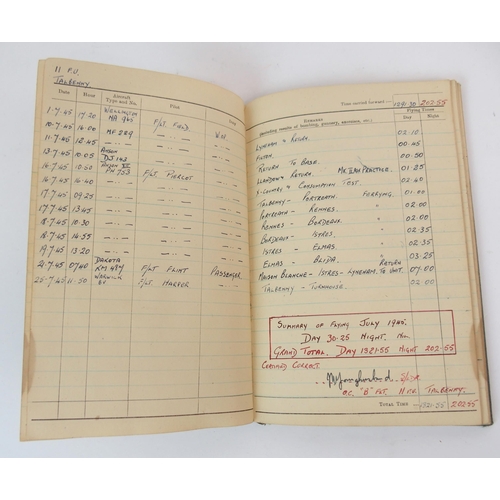 11 F.U.
TALBENNY
Date Hour Aircraft Type and No. Pilot Duty
1-7-45 17.20 WELLINGTON F/LT FIELD. W.OP.
10-7-45 14.06 MF 289 —..— —..—
11-7-45 12.45 —..— —..— —..—
13-7-45 10.05 ANSON DJ 162 —..— —..—
14-7-45 16.40 PH 753 F/LT PIERCOT —..—
17-7-45 09.25 —..— —..— —..—
17-7-45 13.45 —..— —..— —..—
18-7-45 10.30 —..— —..— —..—
18-7-45 14.55 —..— —..— —..—
19-7-45 13.20 —..— —..— —..—
21-7-45 07.40 DAKOTA KM 487 F/LT FLINT PASSENGER
25-7-45 11.50 WARWICK F/LT HARPER —..—
Time carried forward:— 1291.30 202.55
REMARKS Flying Times
(including results of bombing, gunnery, exercises, etc.) Day Night
LYNEHAM TO BASE. 02.10
00.40
RETURN TO BASE. 00.50
PRACTICE. 01.25
CONSUMPTION TEST. 02.40
TALBENNY - PORTREATH. FERRYING. 01.00
PORTREATH - RENNES. " 02.00
RENNES - BORDEAUX. " 02.00
BORDEAUX - ISTRES. " 02.35
ISTRES - ELMAS. " 02.35
ELMAS - BLIDA. " 03.25
MAISON BLANCHE - ISTRES - LYNEHAM. RETURN TO UNIT. 07.00
TALBENNY - TURNHOUSE. 02.00
SUMMARY OF FLYING JULY 1945.
DAY 30.25 NIGHT. NIL
GRAND TOTAL. DAY 1321.55 NIGHT 202.55
CERTIFIED CORRECT.
O.C. "B" FLT. 11 F.U. TALBENNY.
TOTAL TIME 1321.55 202.55